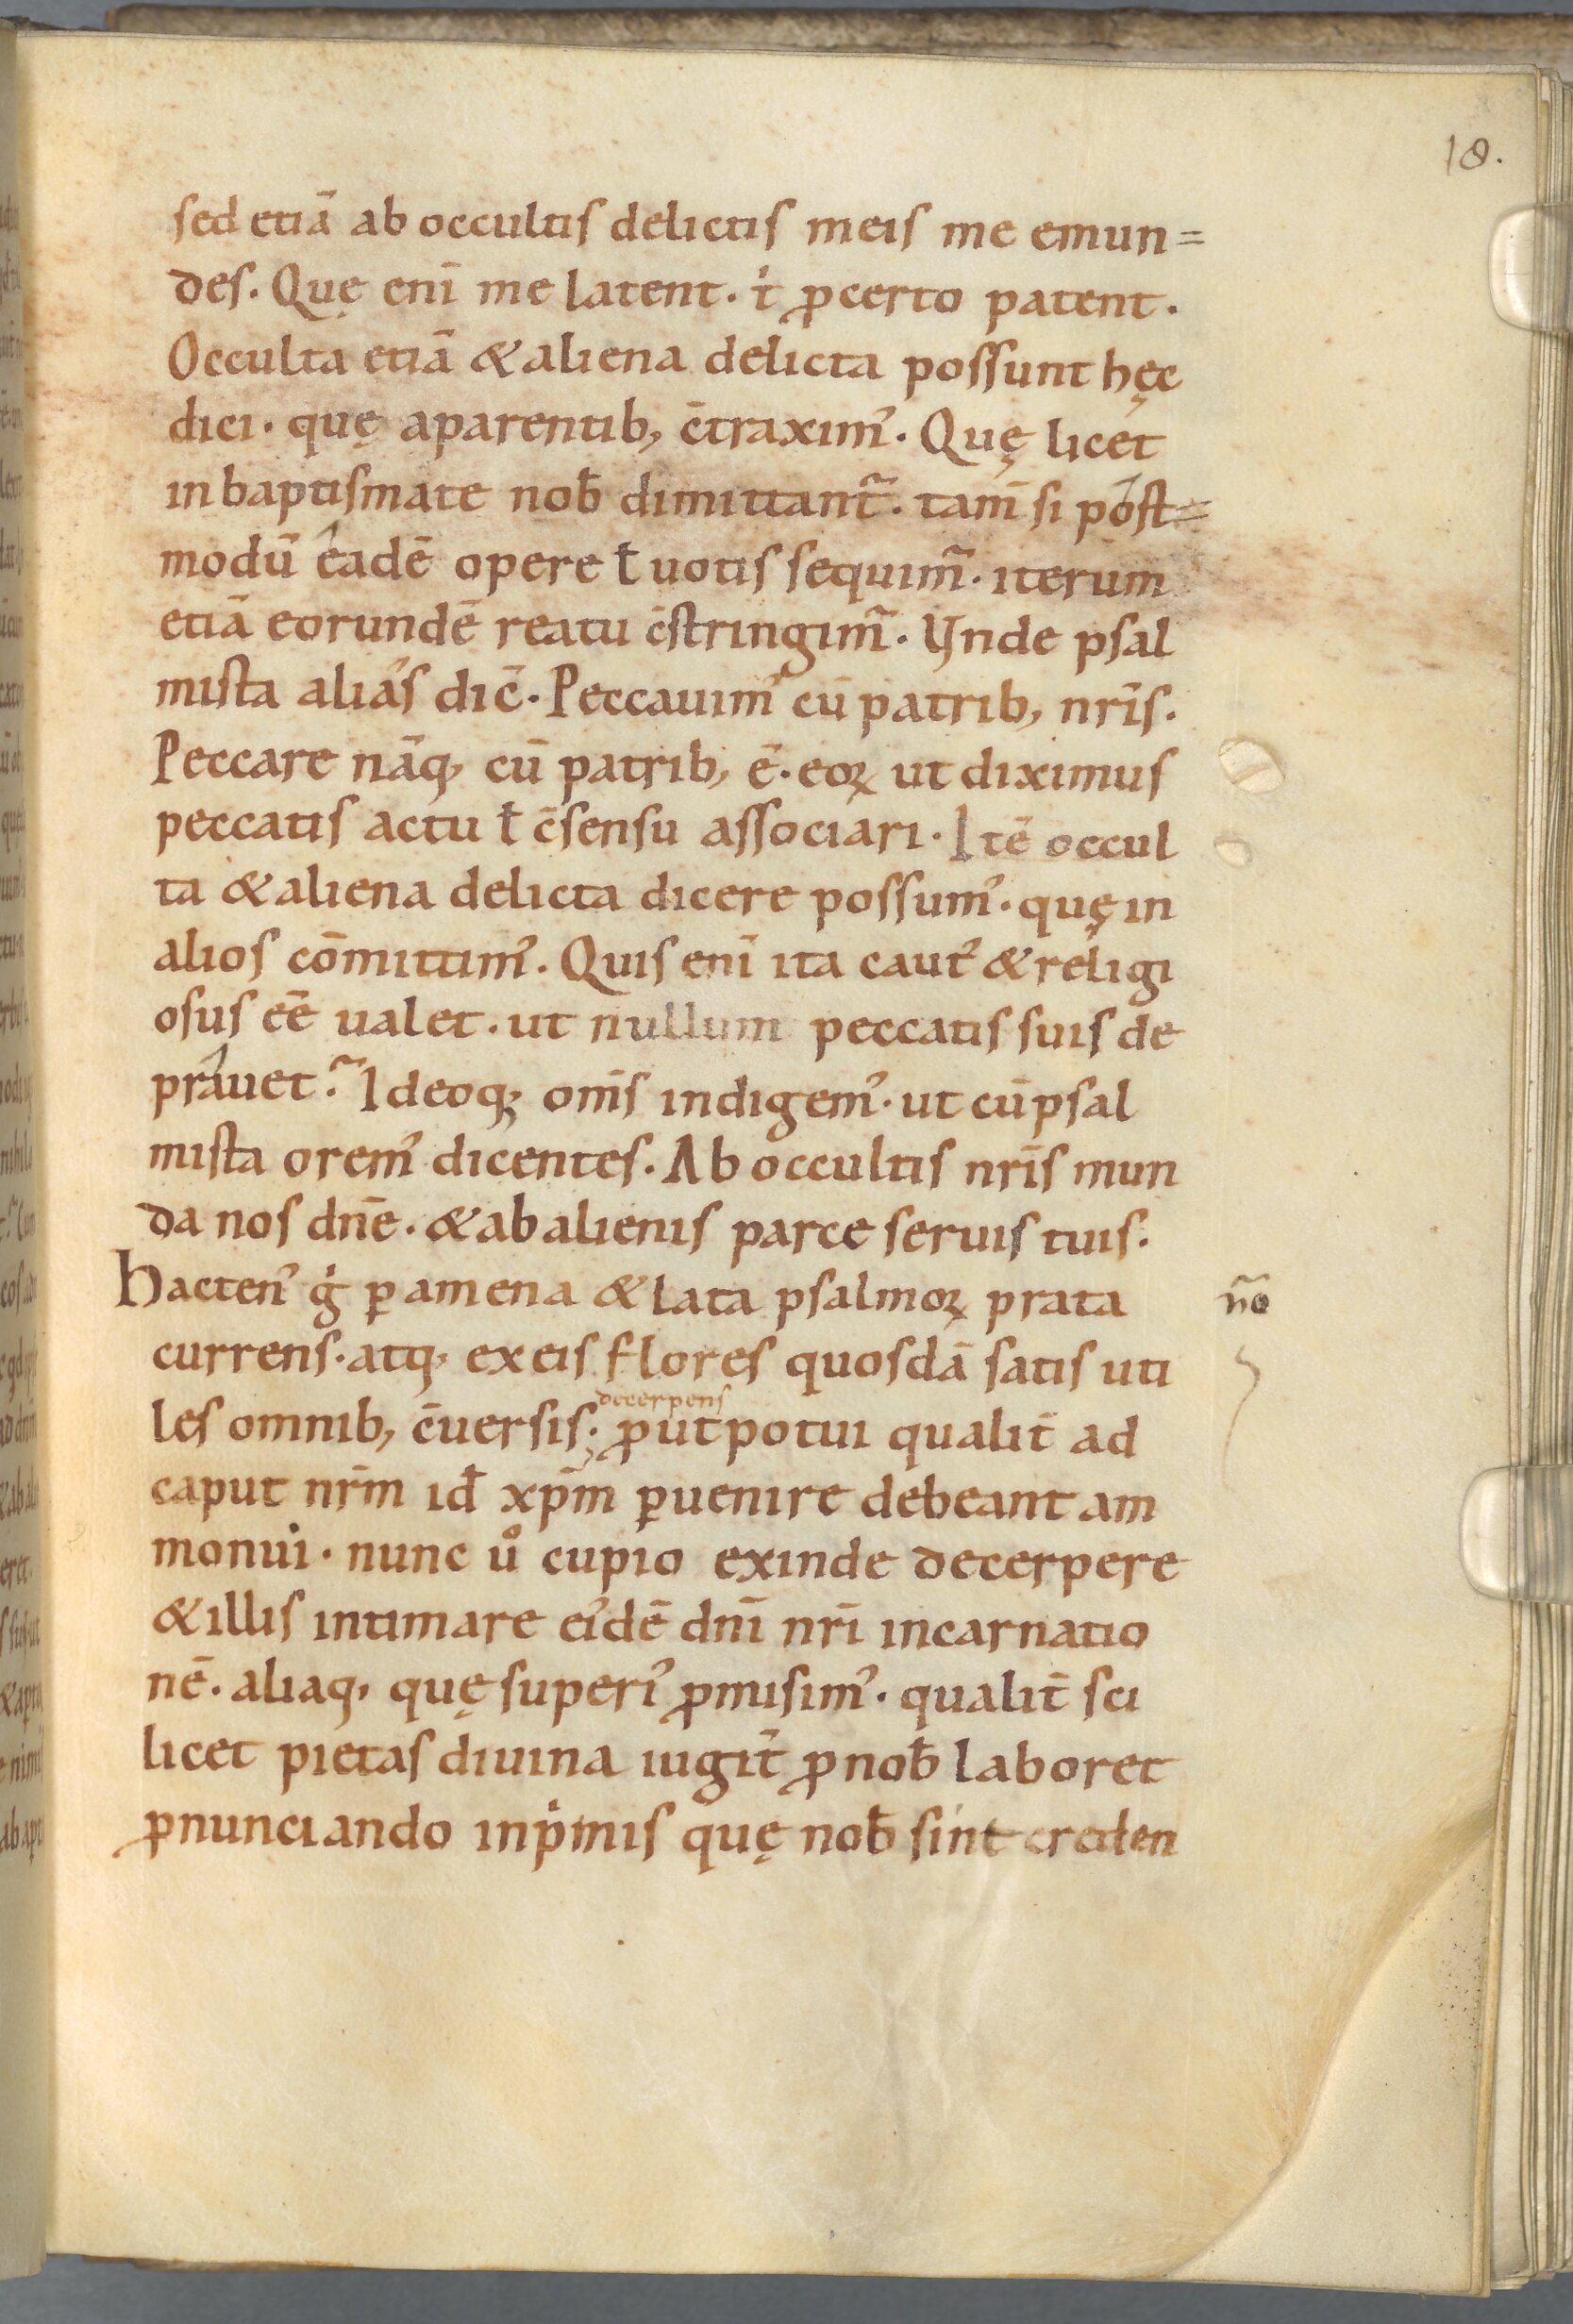 18.
sed etiā ab occultis delictis meis me emun=
des. Quę enī me latent. t᷑ ꝓcerto patent.
Occulta etiā & aliena delicta possunt hęc
dici. quę aparentib, c̄traxim᾿. Quę licet
in baptismate nob̄ dimittant᷑. tam̄ si post=
modū eadē opere ł uotis sequim᷑. iterum
etiā eorundē reatu c̄stringim᷑. Vnde psal
mista alias dic̄. Peccauim᾿ cū patrib, nr̄is.
Peccare nāq, cū patrib, ē. eoꝝ ut diximus
peccatis actu ł c̄sensu associari. Itē occul
ta & aliena delicta dicere possum᾿. quę in
alios cōmittim᾿. Quis enī ita caut᾿ & religi
osus eē ualet. ut nullum peccatis suis de
prauet? Ideoq; om̄s indigem᾿. ut cū psal
mista orem᾿ dicentes. Ab occultis nr̄is mun
da nos dn̄e. & ab alienis parce seruis tuis.
Hacten᾿ gͥ ꝑ amena & lata psalmoꝝ prata
n̄o
currens. atq, ex eis flores quosdā satis uti
decerpens
les omnib, c̄uersis; ꝓut potui qualit̄ ad
caput nr̄m id̄ xp̄m ꝑuenire debeant am
monui. nunc uͦ cupio exinde decerpere
& illis intimare ei᾿dē dn̄i nr̄i incarnatio
nē. aliaq, quę superi᾿ ꝓmisim᾿. qualit̄ sci
licet pietas diuina iugit̄ ꝓ nob̄ laboret
ꝓnunciando inpͥmis quę nob̄ sint creden